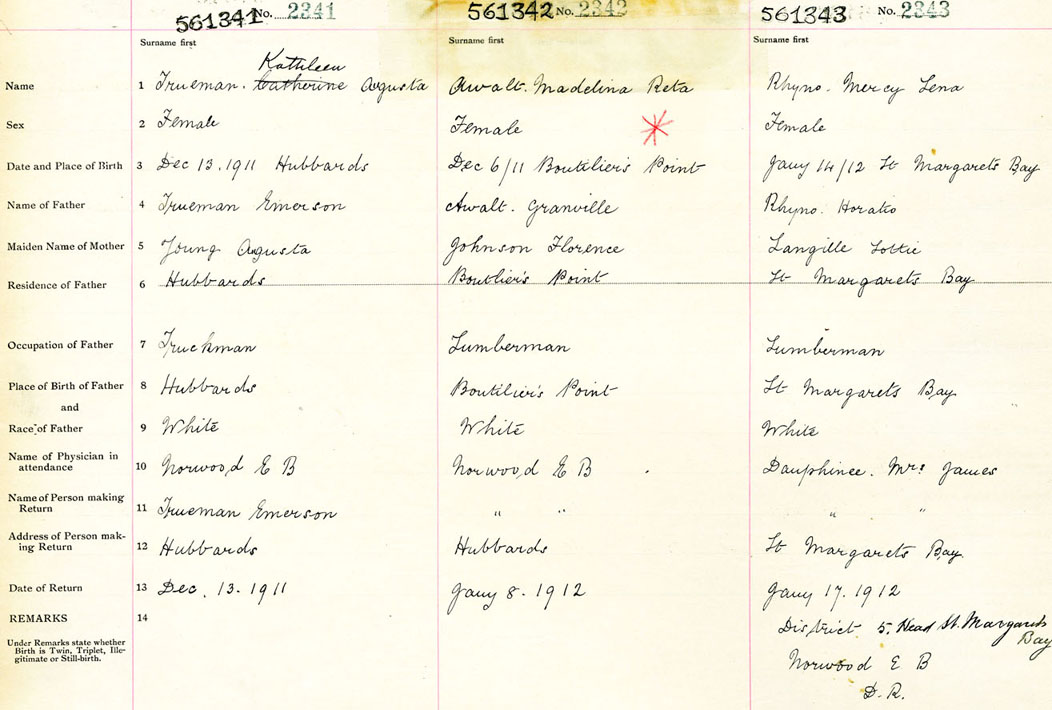 561341 No. 2341 561342 No. 2342 561343 No. 2343
Surname first Surname first Surname first
Kathleen
Name 1 Trueman. Catherine Augusta Awalt. Madelina Reta Rhyno. Mercy Lena
Sex 2 Female Female Female
Date and Place of Birth 3 Dec 13. 1911 Hubbards Dec 6/11 Boutilier's Point Jany 14/12 St Margarets Bay
Name of Father 4 Trueman Emerson Awalt. Granville Rhyno. Horatio
Maiden Name of Mother 5 Young Augusta Johnson Florence Langille Lottie
Residence of Father 6 Hubbards Boutlier's Point St Margarets Bay
Occupation of Father 7 Truckman Lumberman Lumberman
Place of Birth of Father 8 Hubbards Boutilier's Point St Margarets Bay
and
Race of Father 9 White White White
Name of Physician in
attendance 10 Norwood E B Norwood E B Dauphinee. Mrs James
Name of Person making
Return 11 Trueman Emerson " " " "
Address of Person mak-
ing Return 12 Hubbards Hubbards St Margarets Bay
Date of Return 13 Dec. 13. 1911 Jany 8. 1912 Jany 17. 1912
REMARKS 14
Under Remarks state whether
Birth is Twin, Triplet, Ille-
gitimate or Still-birth.
District 5. Head St. Margarets
Bay
Norwood E B
D. R.